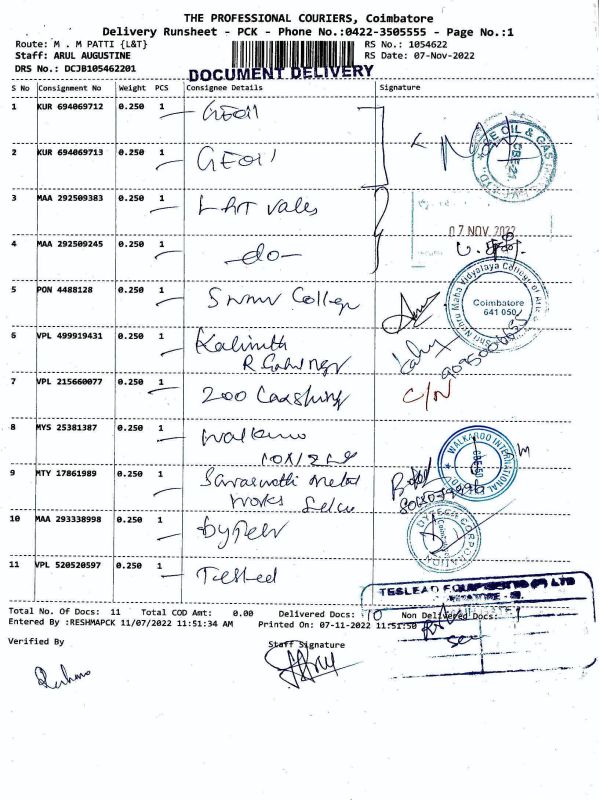 THE PROFESSIONAL COURIERS, Coimbatore
Delivery Runsheet - PCK - Phone No.:0422-3505555 - Page No.:1
Route: M . M PATTI {L&T} RS No.: 1054622
Staff: ARUL AUGUSTINE RS Date: 07-Nov-2022
DRS No.: DCJB105462201
DOCUMENT DELIVERY
S No Consignment No Weight PCS Consignee Details Signature
1 KUR 694069712 0.250 1 GEOil
2 KUR 694069713 0.250 1 GEOil
3 MAA 292509383 0.250 1 L&T Vales
07 NOV 2022
4 MAA 292509245 0.250 1 -do-
5 PON 4488128 0.250 1 College
Coimbatore
641 050
6 VPL 499919431 0.250 1
7 VPL 215660077 0.250 1 200 C/N
8 MYS 25381387 0.250 1
WALKAROO INTERNATIONAL
9 MTY 17861989 0.250 1 Saraswathi metal
works
10 MAA 293338998 0.250 1
CORPORATION
11 VPL 520520597 0.250 1 Teslead
TESLEAD EQUIPMENTS (P) LTD
Total No. Of Docs: 11 Total COD Amt: 0.00 Delivered Docs: 10 Non Delivered Docs: 1
Entered By :RESHMAPCK 11/07/2022 11:51:34 AM Printed On: 07-11-2022 11:51:50
Verified By Staff Signature